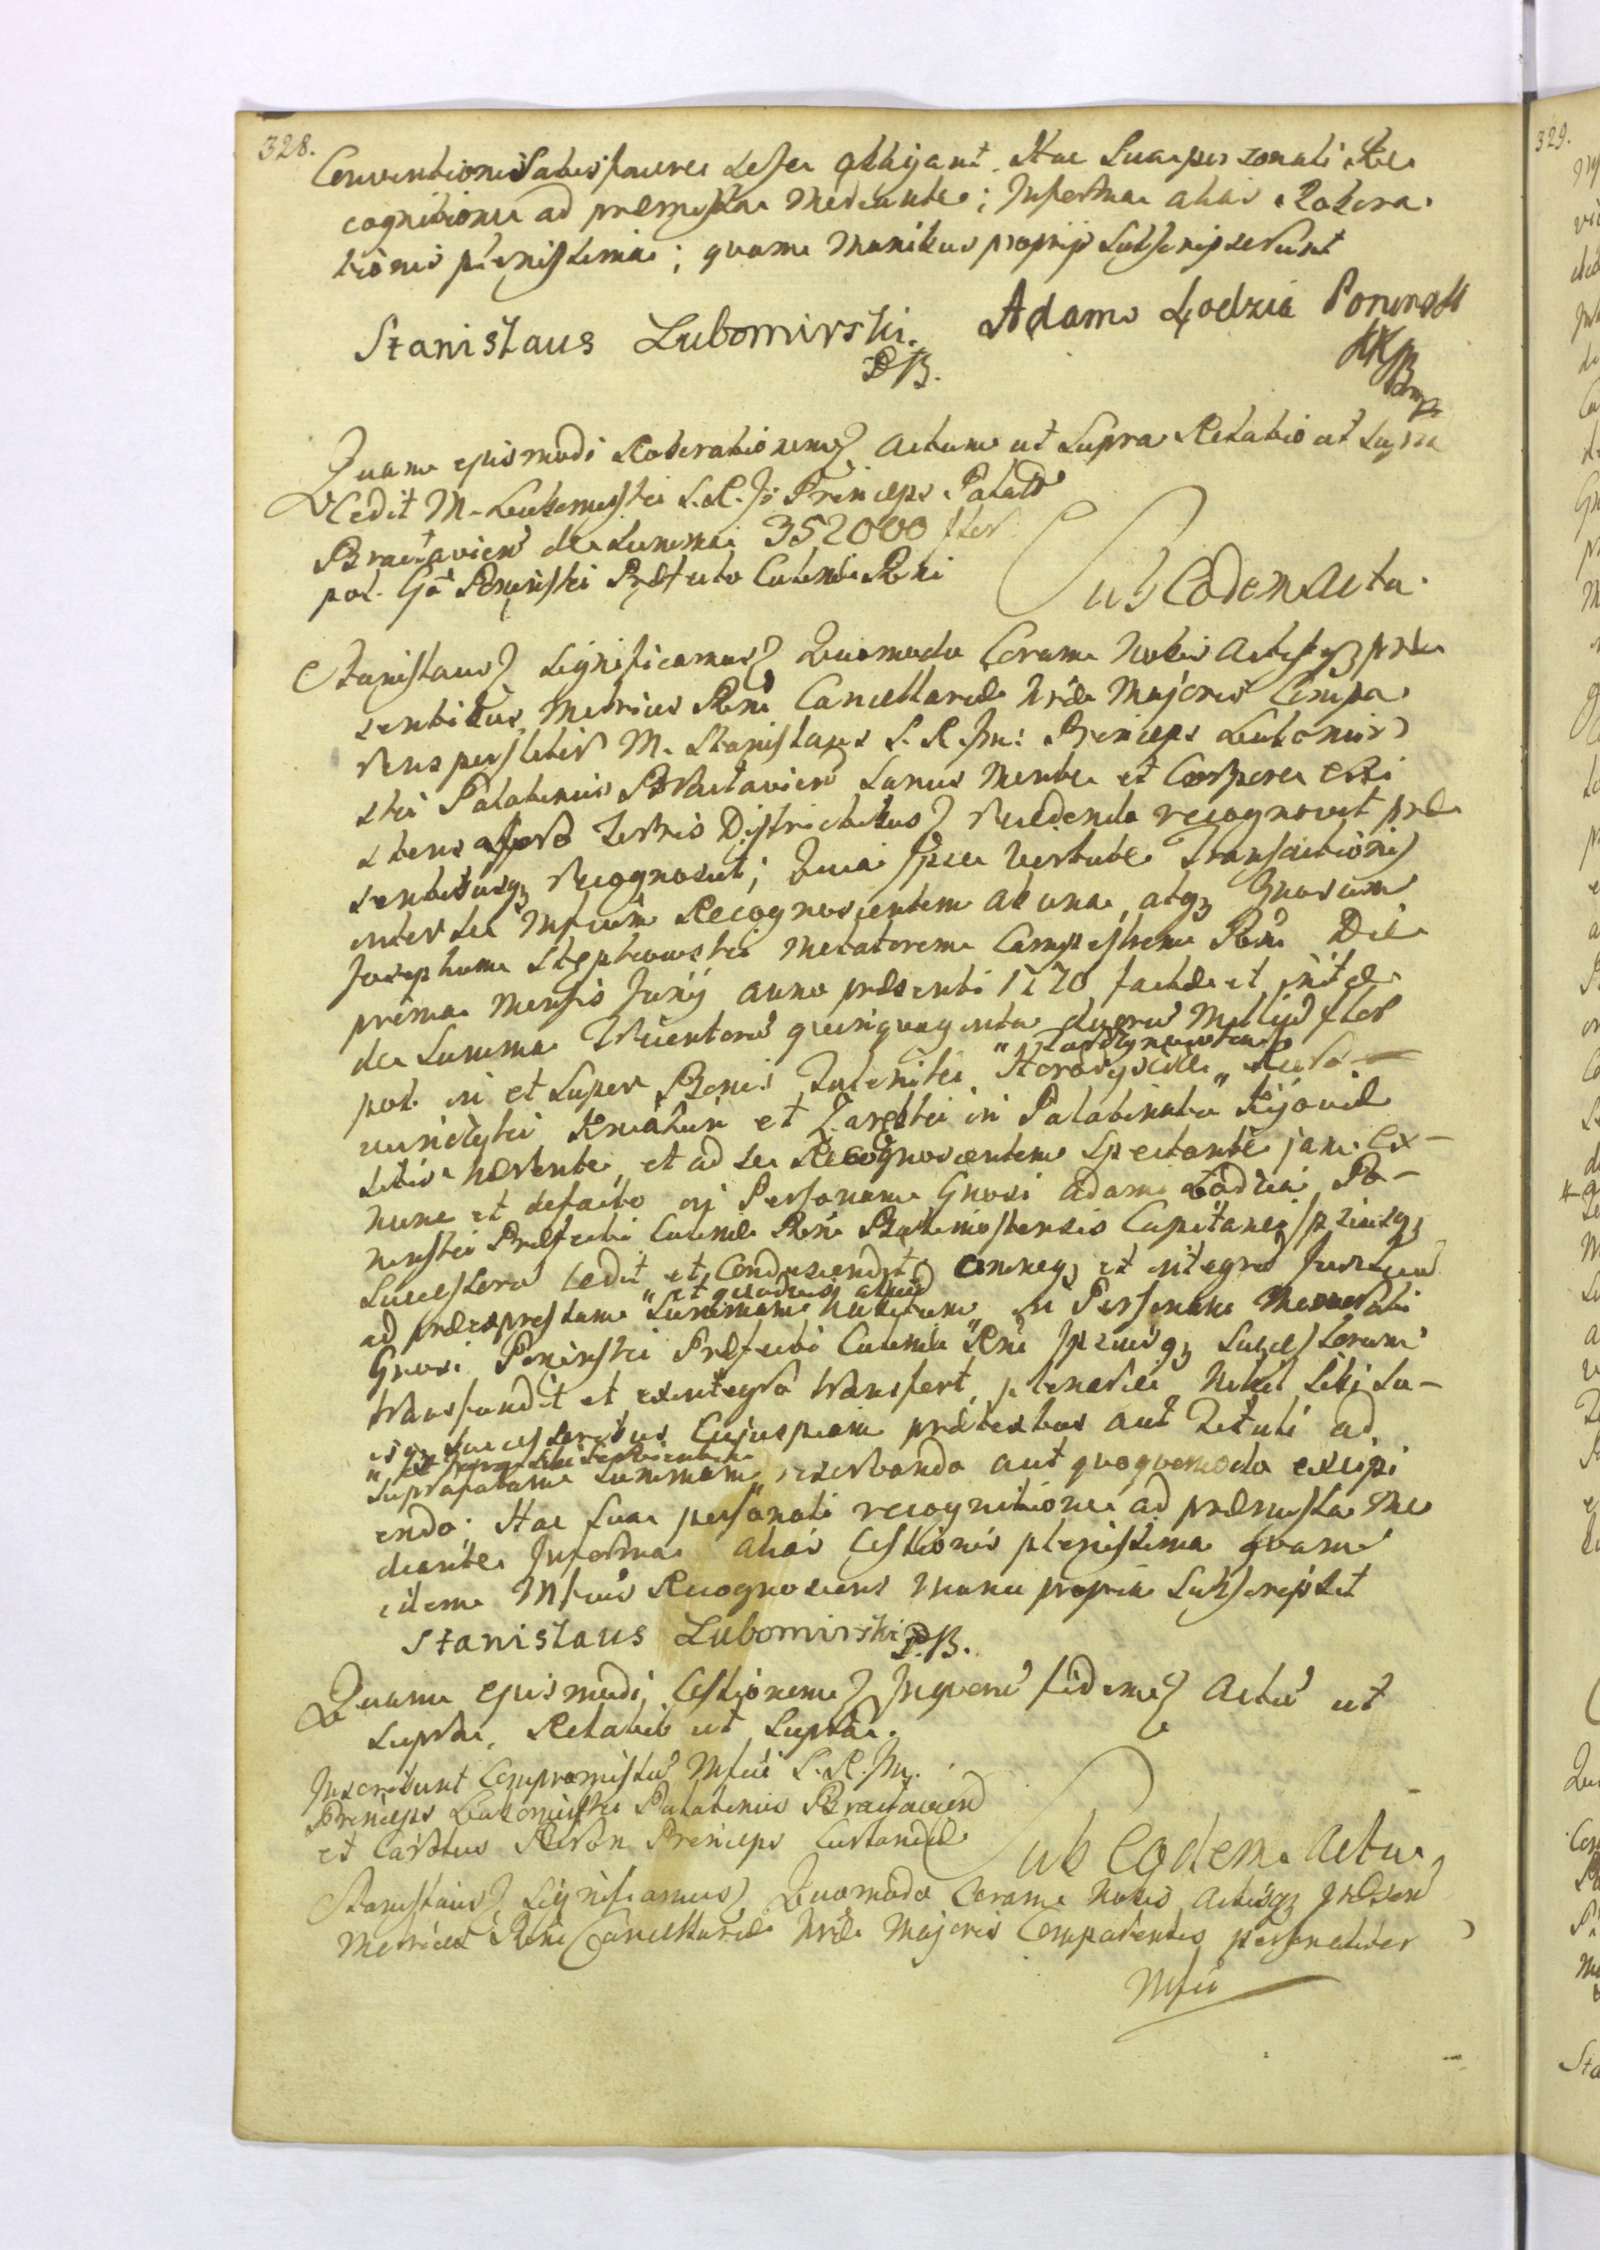 328.
Conventionis Satisfacere sese obligant. Hac Sua personali Re
cognitione ad præmissa Mediante; Informa alias Robora
tionis plenissima; quam Manibus proprijs Subscripserunt
Stanislaus Lubomirski. Adam Łodzia Poninski
PB.
Quam ejusmodi Roborationem Actum ut Supra Relatio ut Supra
Cedit M. Lubomirski S. R. I. Princeps Palatt
Bracłavien de Summa 352000 flor
pol. Gō Poninski Præfecto Culinæ Rni
Sub Eodem Actu.
Stanislaus Significamus Quomodo Coram Nobis Actisq præ
sentibus Metrices Rni Cancellariæ Nræ Majoris Compa
rens personaliter M. Stanislaus S. R. Im: Princeps Lubomir
ski Palatinus Bracłavien Sanus Mente et Corpore Exi
stens Terris Districtibus Recedendo recognovit præ
sentibusq Recognoscit; Quia Ipse Vertute Transactionis
inter se Mfcum Recognoscentem ab una, atq Gnosum
Josephum Stępkowski Metatorem Campestrem Rni Die
prima Mensis Junij anno præsenti 1770 factæ et initæ
de Summa Trecentorū quinquaginta duorū Millium flor
pol. in et Super Bonis
et in Palatinatu Kijoviæ
sitis hærente, et ad se Recognoscentem Spectante jam Ex-
nunc et defacto in Personam Gnosi Adami Łodzia Po-
ninski Præfecti Culinæ Rni Capitanei Ipsiusq
Successorū Cedit et Condescendit omneq et integrū Jus Suum
et quodvis aliud
ad præexpressam Summam habitum in Personam Memorati
Gnosi Poninski Præfecti Culinæ Rni Ipsiusq Successorum
transfundit et exintegro transfert, plenarie Nihil Sibi Su-
isq Successoribus Cujuspiam prætextus aut Tituli ad
suprafatam Summam reservando aut quoquomodo excipi
endo; Hac sua personali recognitione ad præmissa Me
diante Informa alias Cessionis plenissima quam
idem Mfcus Recognoscens Manu propria Subscripsit
Stanislaus Lubomirski P.B.
Quam ejusmodi Cessionem Inquorū fidem Actū ut
Supra. Relatio ut Supra.
Inscribunt Compromissū Mfci S. R. Im.
Princeps Lubomirski Palatinus Bracłavien
et Carolus Princeps Curlandiæ
Sub Eodem Actu.
Stanislaus Significamus Quomodo Coram Nobis Actisq Præsen
Metrices Rni Cancellariæ Nræ Majoris Comparentes personaliter
Mfci
329.